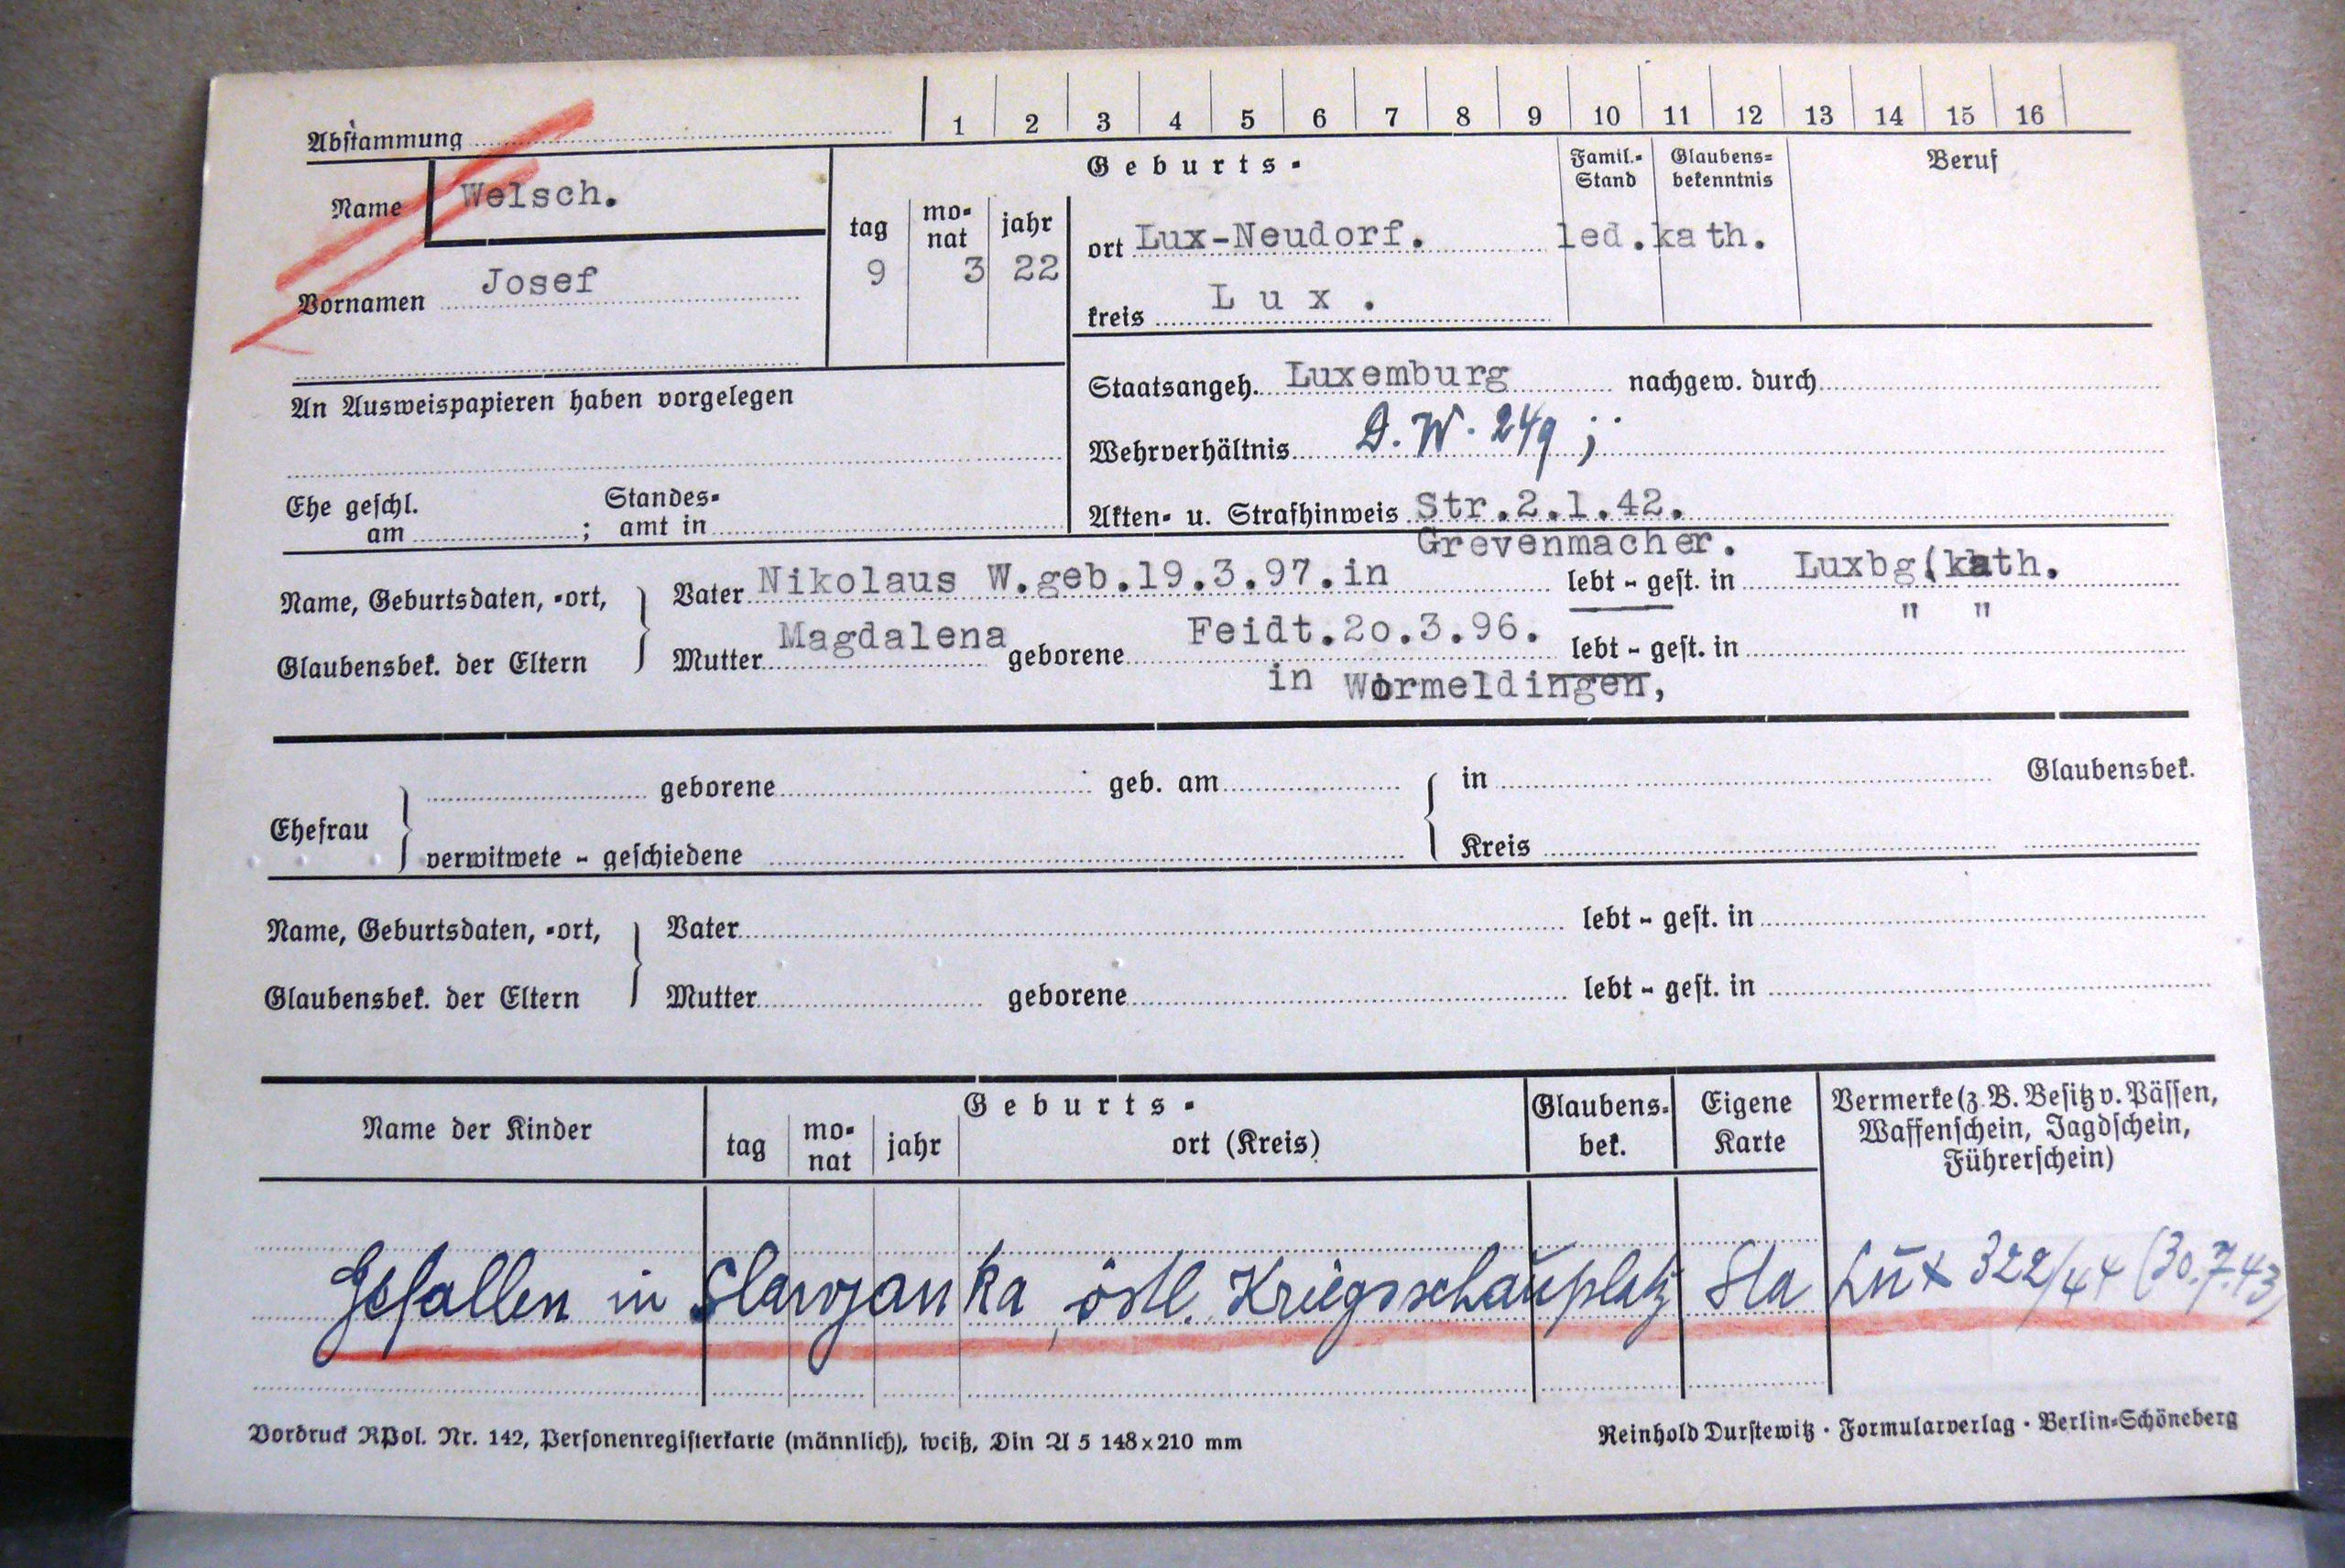 Abstammung 1 2 3 4 5 6 7 8 9 10 11 12 13 14 15 16
Geburts- Famil.- Stand Glaubens- bekenntnis Beruf
Name Welsch.
tag mo- nat jahr ort Lux-Neudorf. led. kath.
Vornamen Josef 9 3 22
kreis Lux.
An Ausweispapieren haben vorgelegen
Staatsangeh. Luxemburg nachgew. durch
Wehrverhältnis D.W. 249;
Ehe geschl. am ; Standes- amt in
Akten- u. Strafhinweis Str.2.1.42.
Grevenmacher.
Name, Geburtsdaten, -ort, Vater Nikolaus W.geb.19.3.97.in lebt - gest. in Luxbg(kath.
Glaubensbek. der Eltern Mutter Magdalena geborene Feidt.20.3.96. lebt - gest. in " "
in Wormeldingen,
Ehefrau geborene geb. am in Glaubensbek.
verwitwete - geschiedene Kreis
Name, Geburtsdaten, -ort, Vater lebt - gest. in
Glaubensbek. der Eltern Mutter geborene lebt - gest. in
Name der Kinder Geburts- Glaubens- bek. Eigene Karte Vermerke (z. B. Besitz v. Pässen,
tag mo- nat jahr ort (Kreis) Waffenschein, Jagdschein,
Führerschein)
Gefallen in Slawjanka, östl. Kriegsschauplatz Sta Lux 322/44 (30.7.43)
Vordruck RPol. Nr. 142, Personenregisterkarte (männlich), weiß, Din A 5 148x210 mm
Reinhold Durstewitz · Formularverlag · Berlin-Schöneberg